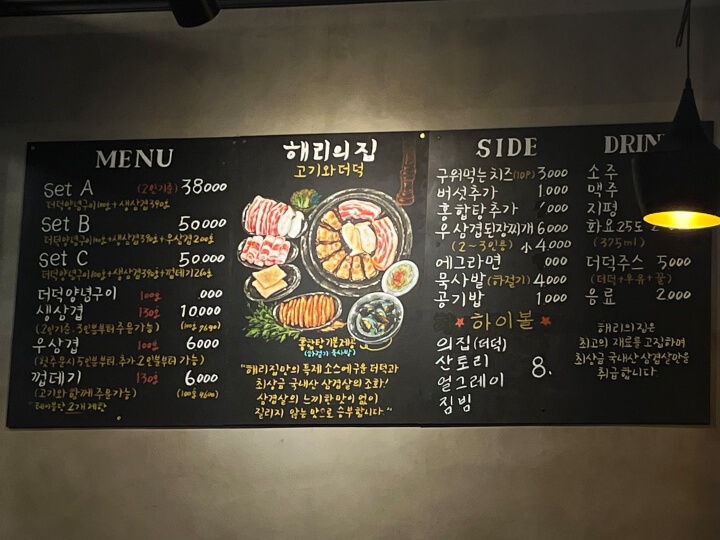 MENU
set A (2인기준) 38000
더덕양념구이100g+생삼겹390g
set B 50000
set C 50000
더덕양념구이 100g .000
생삼겹 130g 10000
(2인기준. 3인분부터 주문가능)
우삼겹 100g 6000
껍데기 130g 6000
(고기와 함께 주문가능) (100g 4600)
테이블당 2개 제한
해리의집
고기와더덕
홍합탕 기본제공
(하절기 묵사발)
"해리집만의 특제 소스에구운 더덕과
최상급 국내산 삼겹살의 조화!
삼겹살의 느끼한맛이 없이
질리지 않는 맛으로 승부합니다."
SIDE
구워먹는치즈(10P) 3000
버섯추가 1.000
홍합탕추가 000
우삼겹된장찌개 6000
(2~3인용) 小4.000
에그라면 .000
묵사발(하절기) 4000
공기밥 1000
하이볼
의집(더덕)
산토리
얼그레이
짐빔
8.
DRIN
소주
맥주
지평
화요25도
(375ml)
더덕주스 5000
(더덕+우유+꿀)
음료 2.000
해리의집은
최고의 재료를 고집하며
최상급 국내산 삼겹살만을
취급합니다